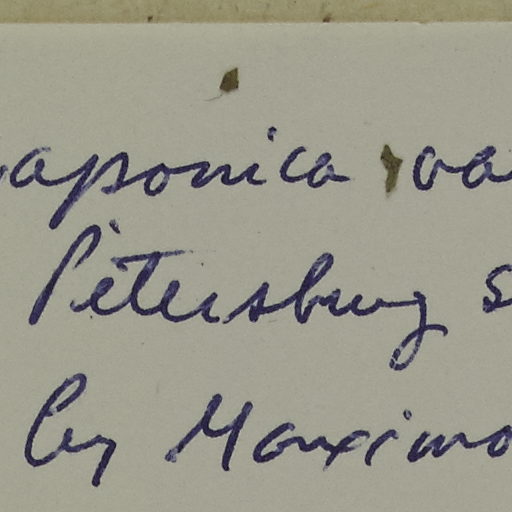 aponica va
Petersburg s
by Maximo